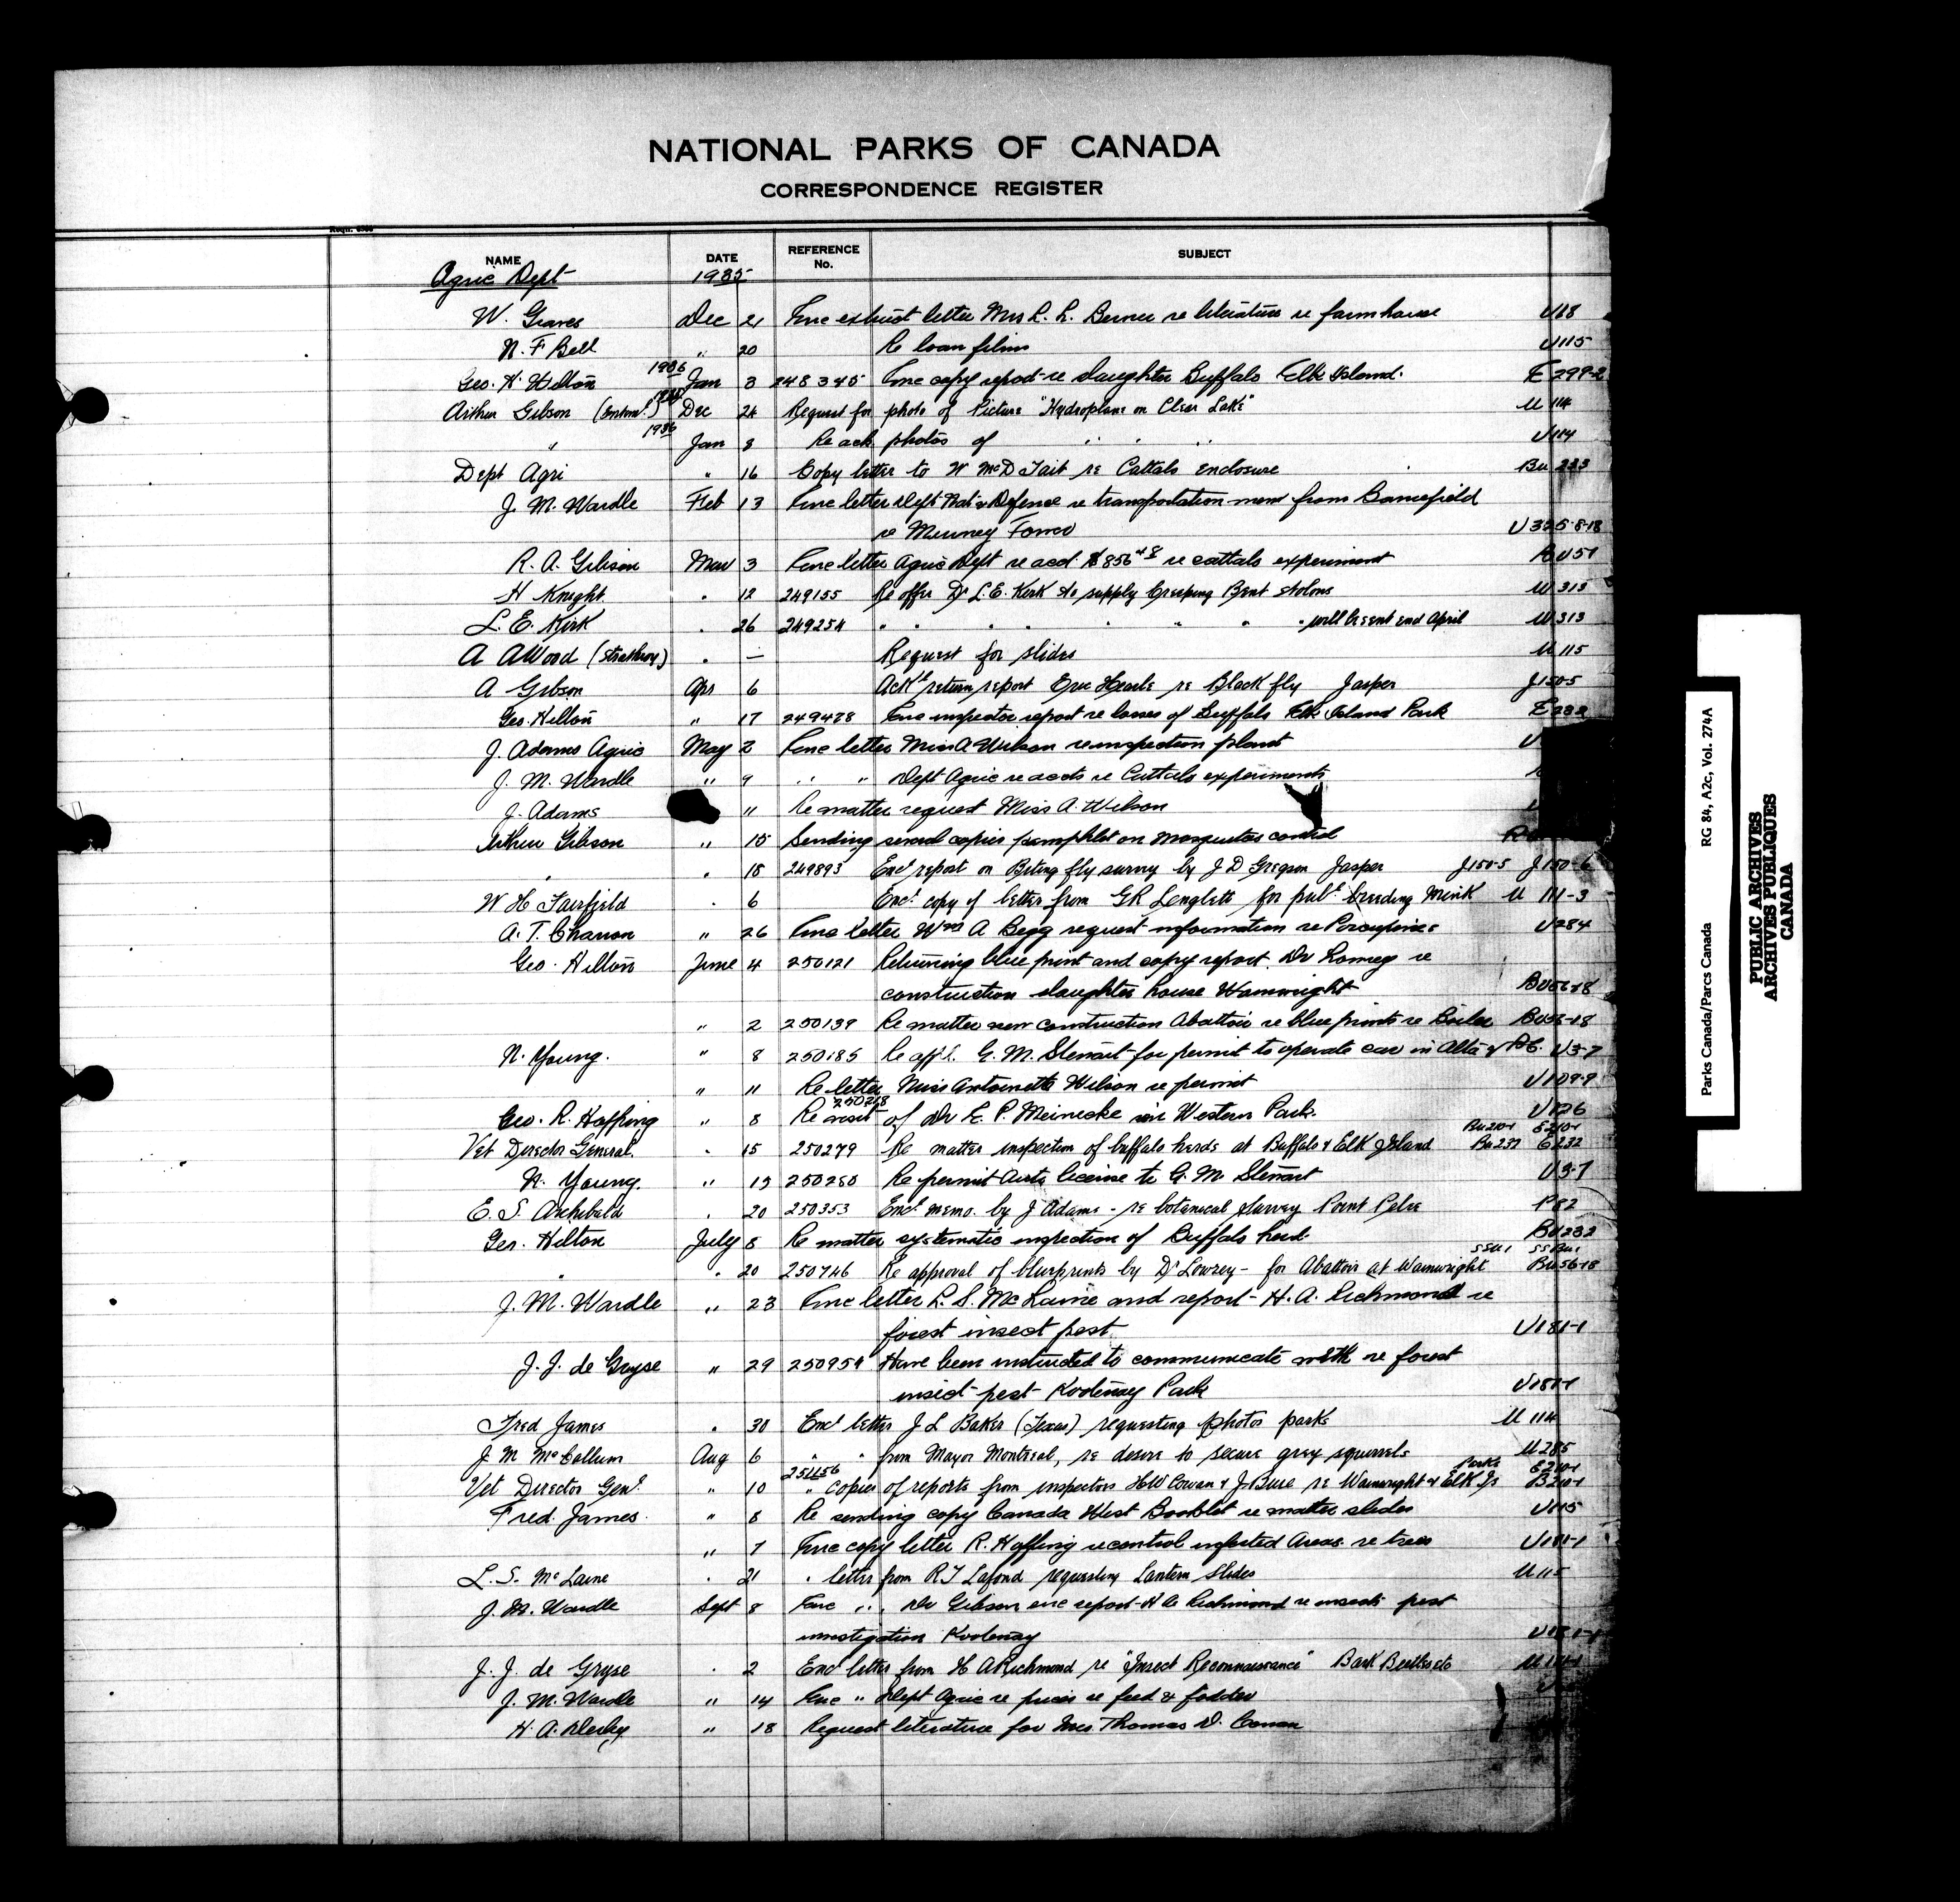 NATIONAL PARKS OF CANADA
CORRESPONDENCE REGISTER
NAME DATE REFERENCE No. SUBJECT
Agric Dept 1935
W. Graves Dec 21 Enc extract letter Mrs L. L. re literature re farm house U18
N. F Bell " 20 Re loan films U115
Geo. H. Hilton 1936 Jan 3 248345 Enc copy report re slaughter Buffalo Elk Island. E 299-2
Arthur Gibson (Entom.) Dec 24 Request for photo of Picture "Hydroplane on Clear Lake" U 114
" 1936 Jan 8 Re ack photos of " " " U114
Dept Agri " 16 Copy letter to W McD Tait re Cattalo enclosure Bu 233
J. M. Wardle Feb 13 Enc letter Dept Nat. Defence re transportation men from Barriefield
re U325-8-18
R. A. Gibson Mar 3 Enc letter Agric Dept re acct $856.48 re cattalo experiment BU51
H Knight " 12 249155 Re offer Dr L. E. Kirk to supply Creeping Bent stolons U 313
L. E. Kirk " 26 249254 " " " " " " " " will be sent end April U 313
A A Wood (Strathroy) " — Request for slides U 115
A Gibson Apr 6 Ack & return report Eric Hearle re Black fly Jasper J150-5
Geo. Hilton " 17 249428 Enc inspector report re losses of Buffalo Elk Island Park E 232
J. Adams Agric May 2 Enc letter Miss A Wilson re inspection plant U
J. M. Wardle " 9 " " Dept Agric re accts re Cattalo experiments
J. Adams 11 Re matter request Miss A. Wilson
Arthur Gibson " 15 Sending several copies pamphlet on mosquitoe control
" " 18 249893 Enc report on Biting fly survey by J D Gregson Jasper J150-5 J150-6
W H Fairfield " 6 Enc. copy of letter from GR Langlett for publ. breeding Mink U 111-3
A. T. Charron " 26 Enc letter Wm A Begg request information re Porcupines U284
Geo. Hilton June 4 250121 Returning blue print and copy report. Dr Lowrey re
construction slaughter house Wainwright BU56-18
" 2 250139 Re matter new construction Abattoir re blue prints re Boiler BU56-18
N. Young. " 8 250185 Re appl. G. M. Stewart for permit to operate car in Alta & BC. U3-7
" 11 Re letter Miss Antoinette Wilson re permit U109-9
Geo. R. Hopping " 8 250218 Re visit of Dr E. P. Meinecke in Western Park. U126
Bu210-1 E210-1
Vet Director General. " 15 250279 Re matter inspection of buffalo herds at Buffalo & Elk Island Bu 232 E232
N. Young. " 19 250280 Re permit Auto license to G. M. Stewart U3-7
E. S. Archibald " 20 250353 Enc. memo. by J Adams - re botanical Survey Point Pelee P82
Geo. Hilton July 8 Re matter systematic inspection of Buffalo herd. BU232
" " 20 250746 Re approval of blueprints by Dr Lowrey - for Abattoir at Wainwright Bu56-18
J. M. Wardle " 23 Enc letter L. S. McLaine and report - H. A. Richmond re
forest insect pest. U181-1
J. J. de Gryse " 29 250959 Have been instructed to communicate with re forest
insect pest Kootenay Park U181-1
Fred James " 30 Enc letter J L Baker (Texas) requesting photos parks U 114
J M McCallum Aug 6 " " from Mayor Montreal, re desire to secure grey squirrels U285
251156 Parks E210-1
Vet Director Genl. " 10 " copies of reports from inspectors HW Cowan & J. Buie re Wainwright & Elk Is B210-1
Fred. James. " 8 Re sending copy Canada West Booklet re matter slides U115
" 7 Enc copy letter R. Hopping re control infested areas re trees U181-1
L. S. McLaine " 21 " letter from R J Lafond requesting Lantern Slides U 115
J. M. Wardle Sept 8 Enc " " Dr Gibson enc report H A Richmond re insect pest
investigation Kootenay U181-1
J. J. de Gryse " 2 Enc letter from H A Richmond re "Insect Reconnaissance" Bark Beetles etc U 181-1
J. M. Wardle " 14 Enc " Dept Agric re prices re feed & fodder
H. A. Derby " 18 Request literature for Mrs. Thomas D. Cowan
RG 84, A2c, Vol. 274A
Parks Canada/Parcs Canada
PUBLIC ARCHIVES
ARCHIVES PUBLIQUES
CANADA